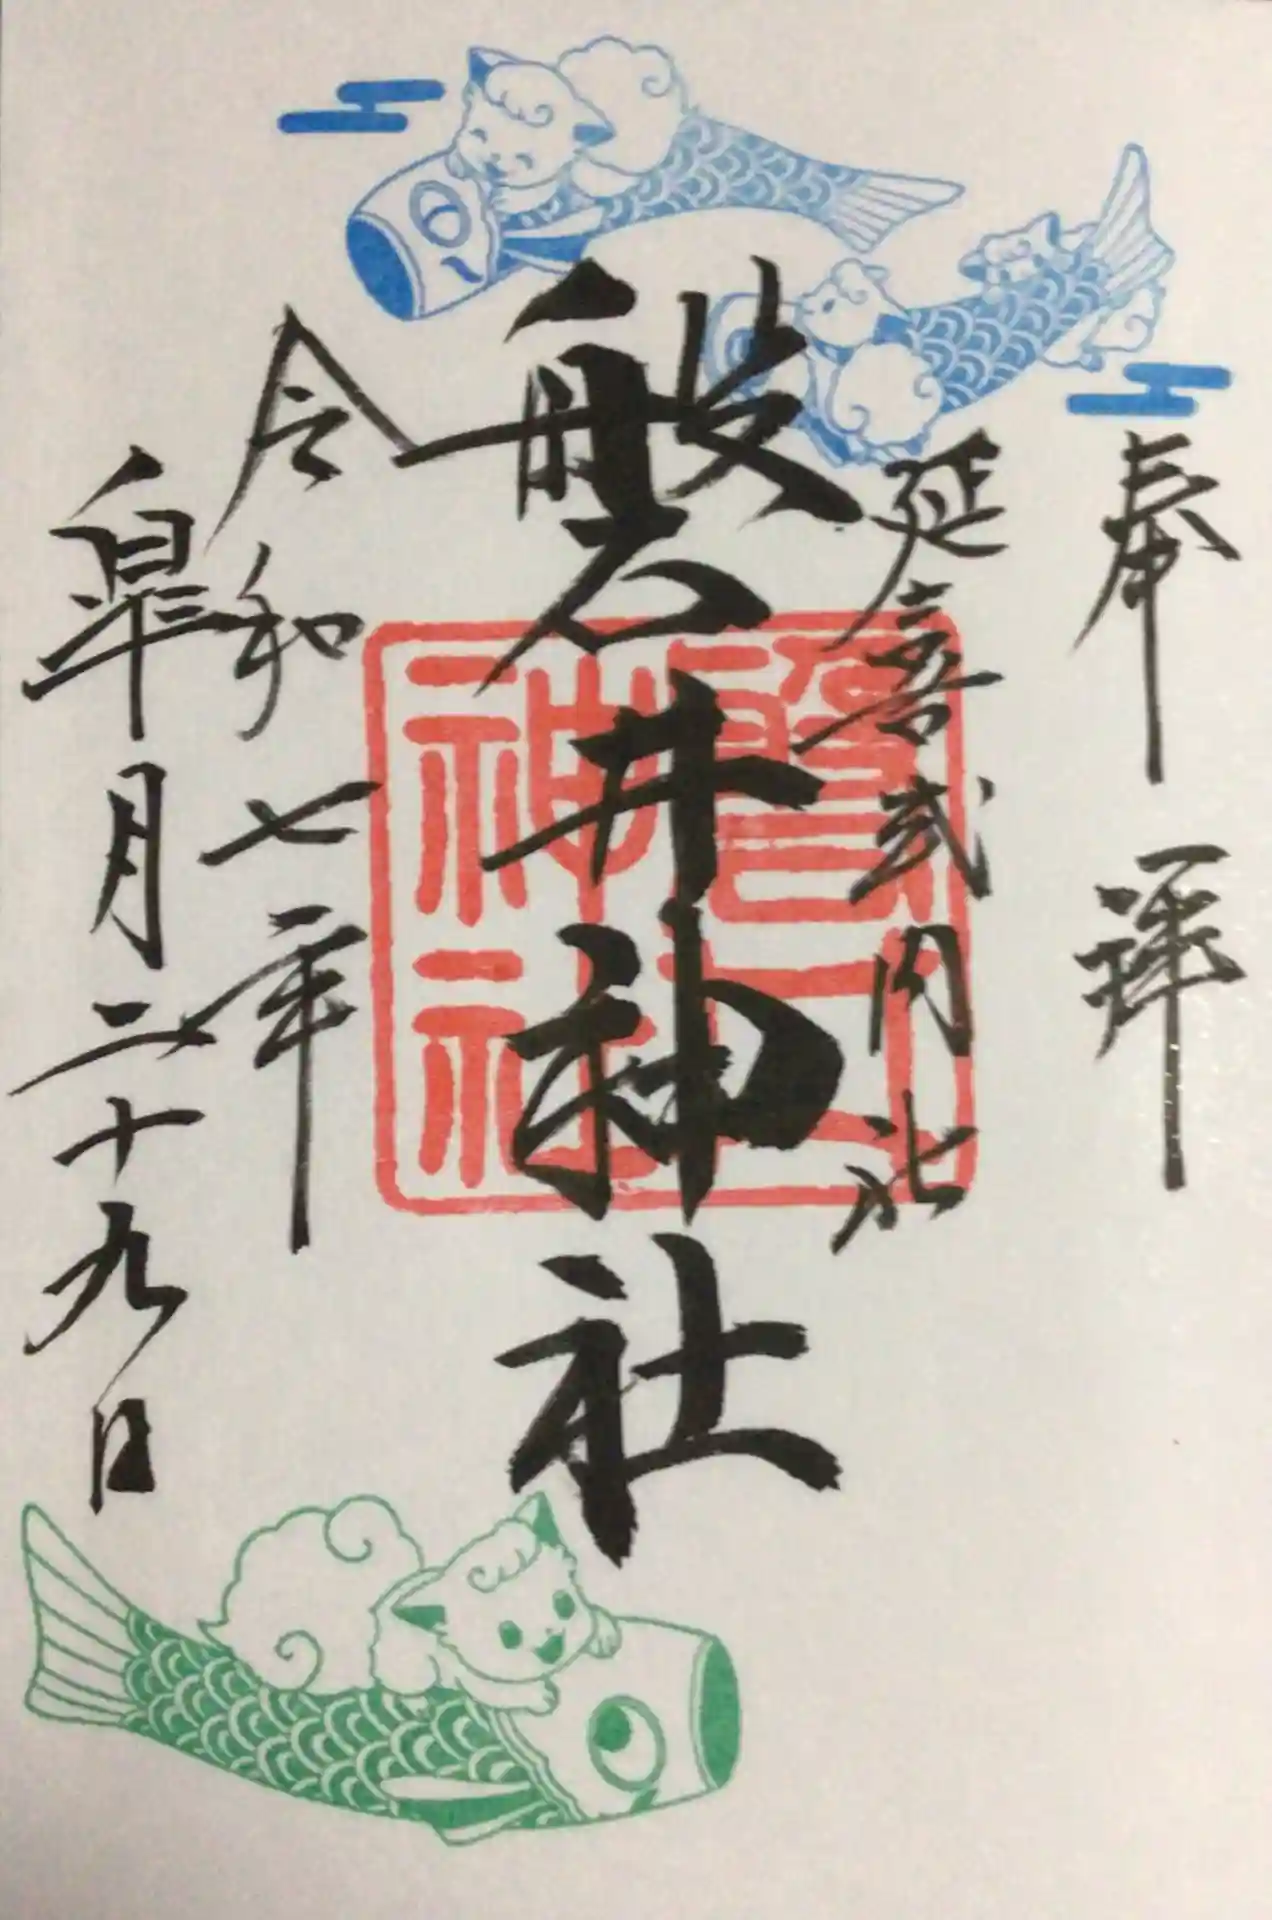 奉拝
延喜式内社
磐井神社
令和七年
皐月二十九日
神社